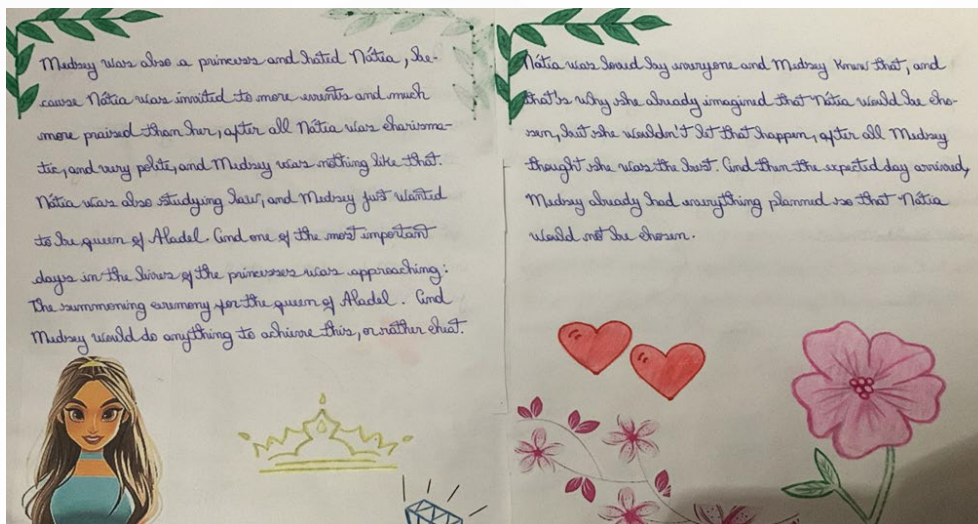 Medsey was also a princess and hated Nátia, be-
cause Nátia was invited to more events and much
more praised than her, after all Nátia was charisma-
tic, and very polite, and Medsey was nothing like that.
Nátia was also studying law, and Medsey just wanted
to be queen of Aladel. And one of the most important
days in the lives of the princesses was approaching:
The summoning ceremony for the queen of Aladel. And
Medsey would do anything to achieve this, or rather cheat.
Nátia was loved by everyone and Medsey knew that, and
that's why she already imagined that Nátia would be cho-
sen, but she wouldn't let that happen, after all Medsey
thought she was the best. And then the expected day arrived,
Medsey already had everything planned so that Nátia
would not be chosen.